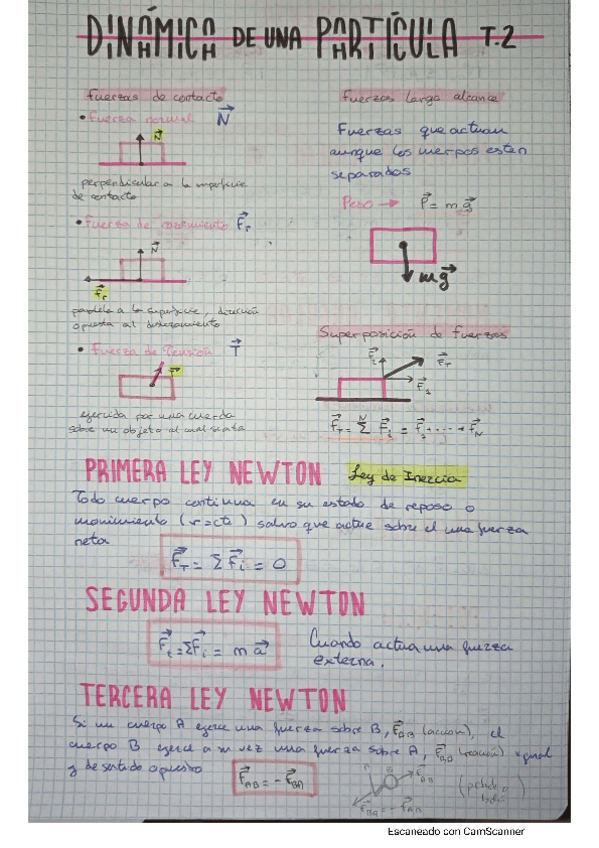 DINÁMICA DE UNA PARTÍCULA T.2
fuerzas de contacto
• Fuerza normal N
N
perpendicular a la superficie
de contacto
• Fuerza de rozamiento Fr
N
Fr
paralela a la superficie, dirección
opuesta al deslizamiento
• Fuerza de Tensión T
T
ejercida por una cuerda
sobre un objeto al cual sujeta
Fuerzas largo alcance
Fuerzas que actuan
aunque los cuerpos esten
separados
Peso → P = mg
mg
Superposición de fuerzas
F2 FT
F1
FT = Σ Fi = F1 + ... + FN
PRIMERA LEY NEWTON Ley de Inercia
Todo cuerpo continua en su estado de reposo o
movimiento (v=cte) salvo que actue sobre el una fuerza
neta
FT = Σ Fi = 0
SEGUNDA LEY NEWTON
Ft = ΣFi = m a Cuando actua una fuerza
externa.
TERCERA LEY NEWTON
Si un cuerpo A ejerce una fuerza sobre B, FAB (acción), el
cuerpo B ejerce a su vez una fuerza sobre A, FBA (reacción) igual
y de sentido opuesto
FAB = - FBA
FAB
FBA = - FAB
Escaneado con CamScanner